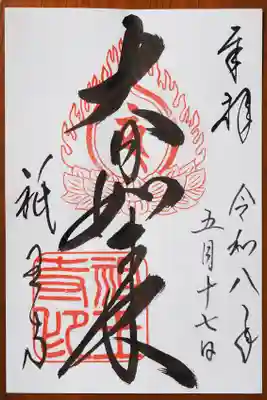 奉拝
令和八年
五月十七日
大日如来
祇王寺
祇王
寺印